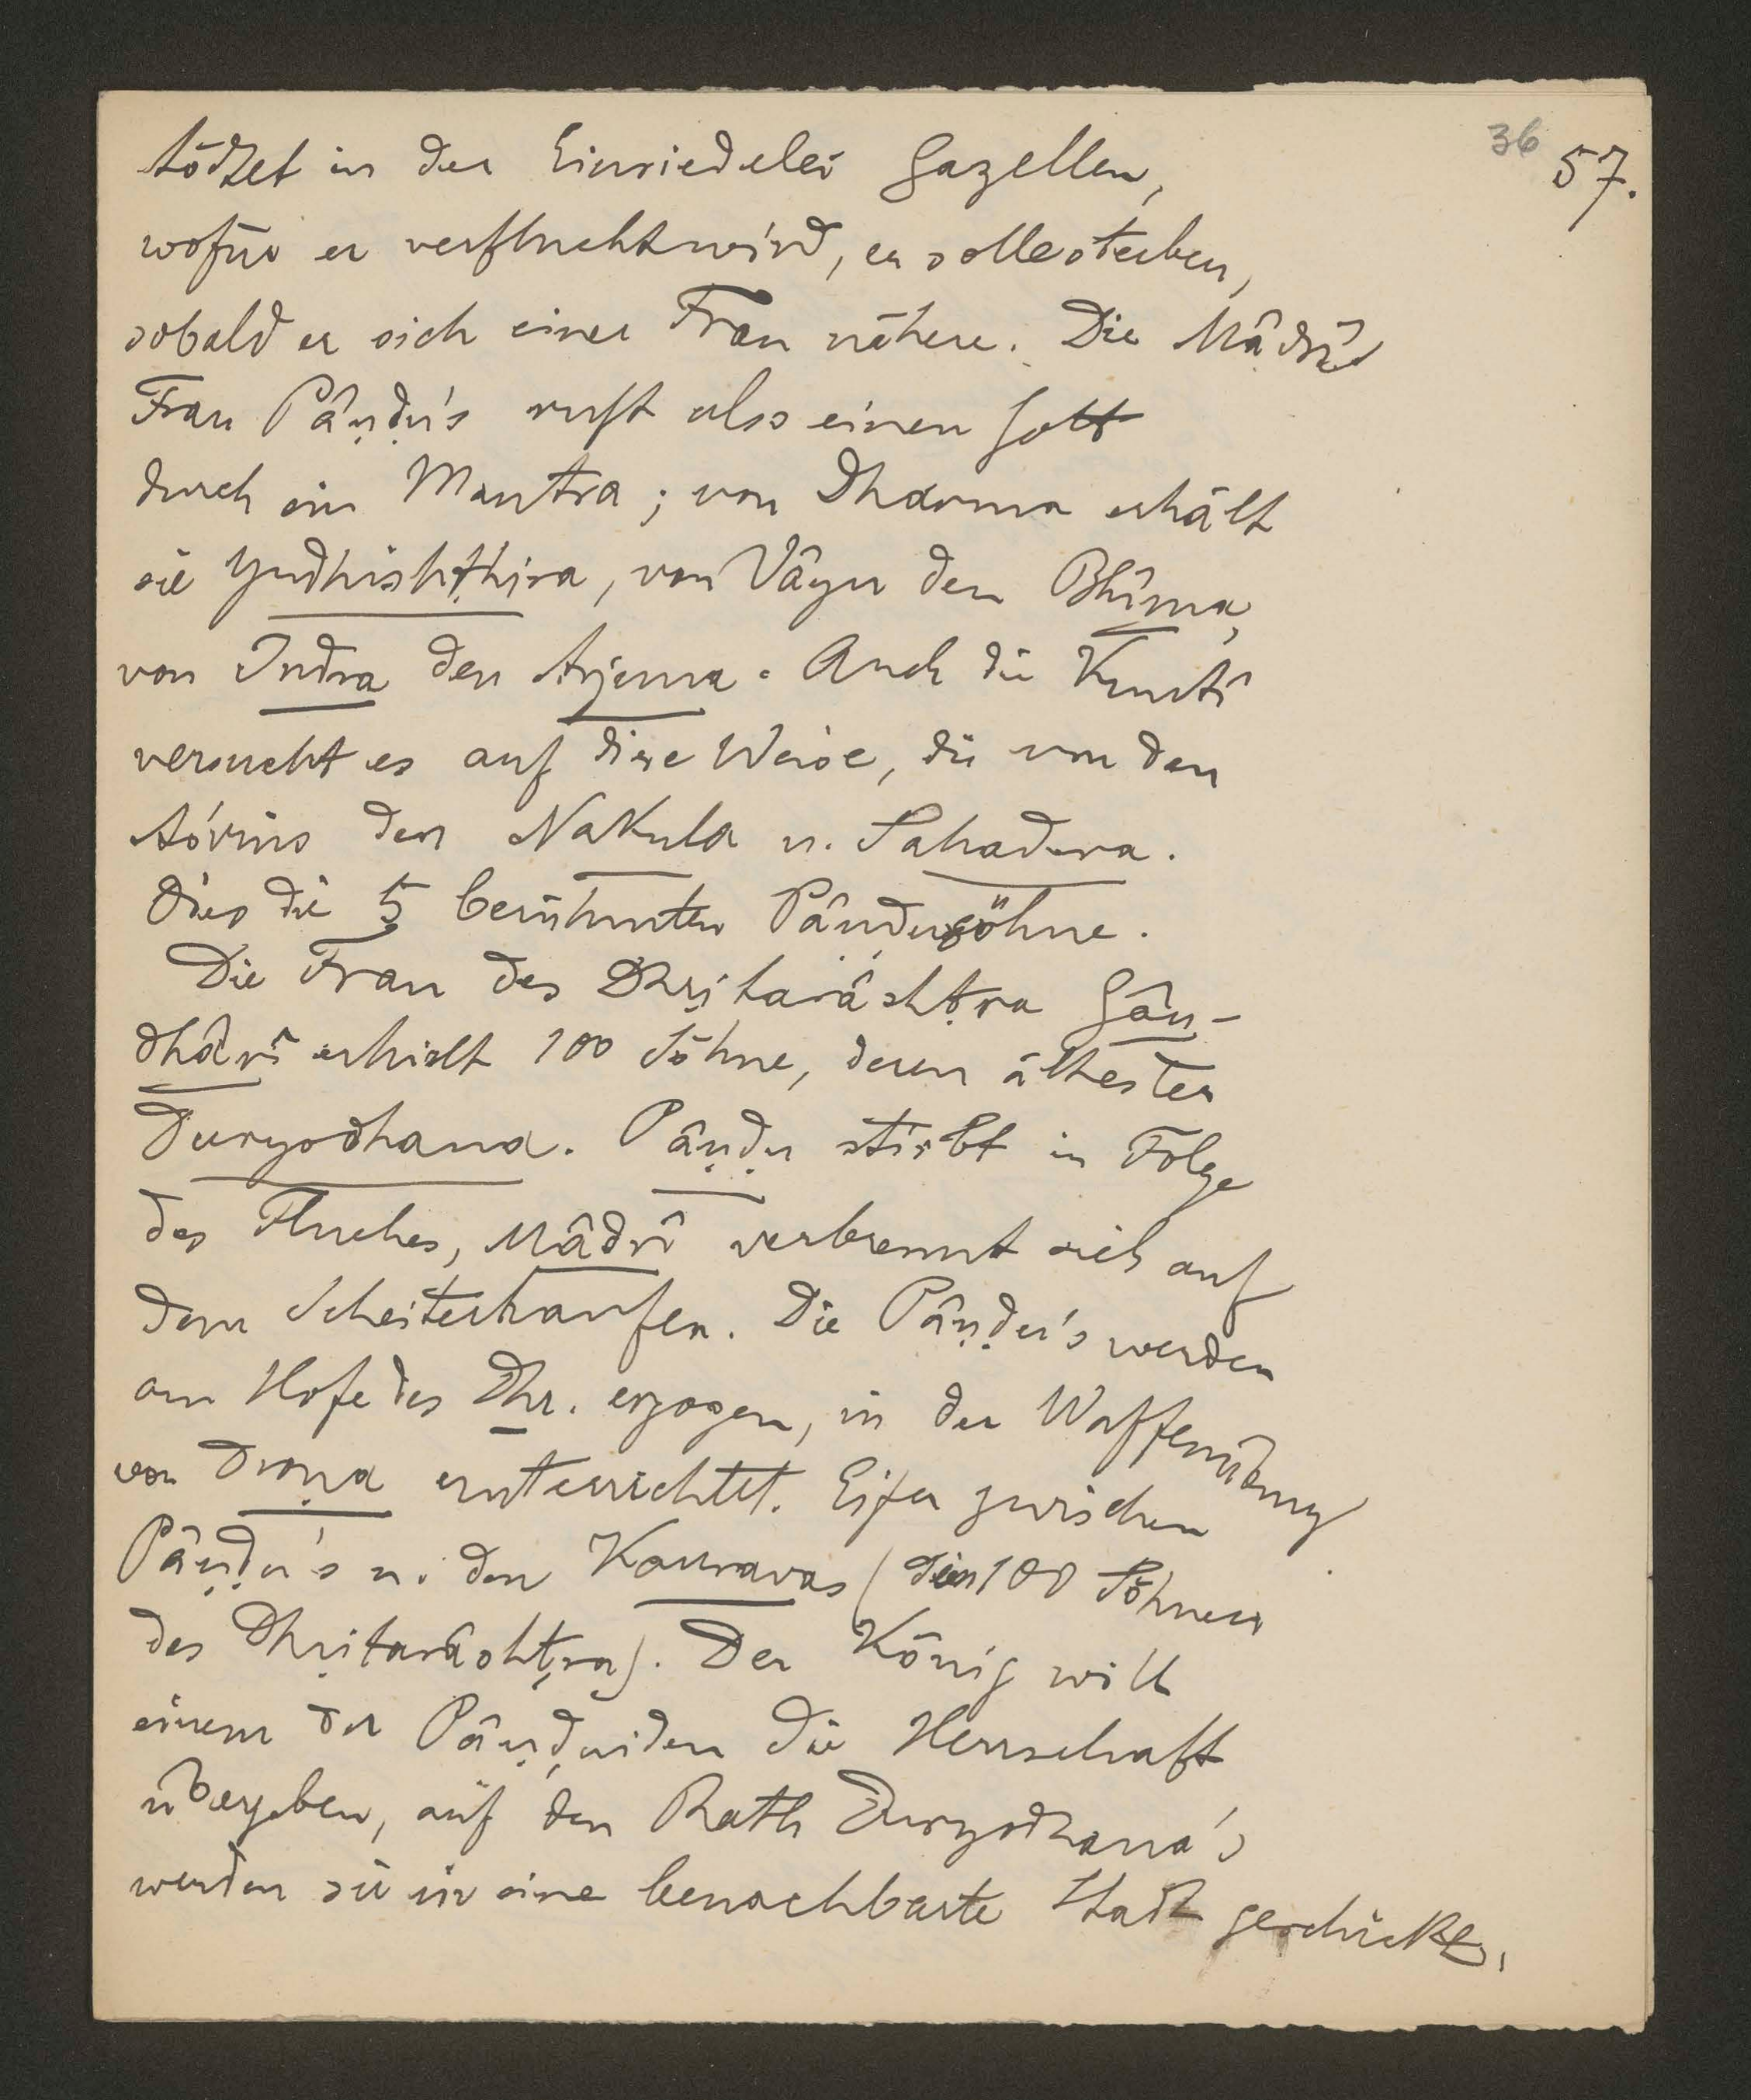 36
57.
tödtet in der Einsiedelei Gazellen,
wofür er verflucht wird, er solle sterben,
sobald er sich einer Frau nähere. Die Mâdrî
Frau Pâṇḍu's ruft also einen Gott
durch ein Mantra; von Dharma erhält
sie Yudhishṭhira, von Vâyu den Bhîma,
von Indra den Arjuna. Auch die Kuntî
versucht es auf diese Weise, die von den
Aśvins den Nakula u. Sahadeva.
Dies die 5 berühmten Pâṇḍusöhne.
Die Frau des Dhṛitarâshṭra Gân-
dhârî erhielt 100 Söhne, deren ältester
Duryodhana. Pâṇḍu stirbt in Folge
des Fluches, Mâdrî verbrennt sich auf
dem Scheiterhaufen. Die Pâṇḍu's werden
am Hofe des Dhr. erzogen, in der Waffenübung
von Droṇa unterrichtet. Eifer zwischen
Pâṇḍu's u. den Kauravas (den 100 Söhnen
des Dhṛitarâshṭra). Der König will
einem der Pâṇḍuiden die Herrschaft
übergeben, auf den Rath Duryodhana's
werden sie in eine benachbarte Stadt geschickt.